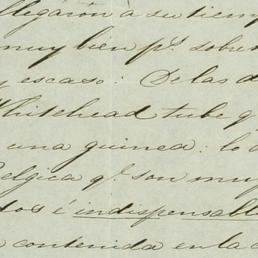 llegaron á su tiemp
muy bien p.ª sobre
y escaso: De las d
Whitehead tube q
una guinea: lo d
Belgica q.e son muy
dos é indispensable
contenida en la c